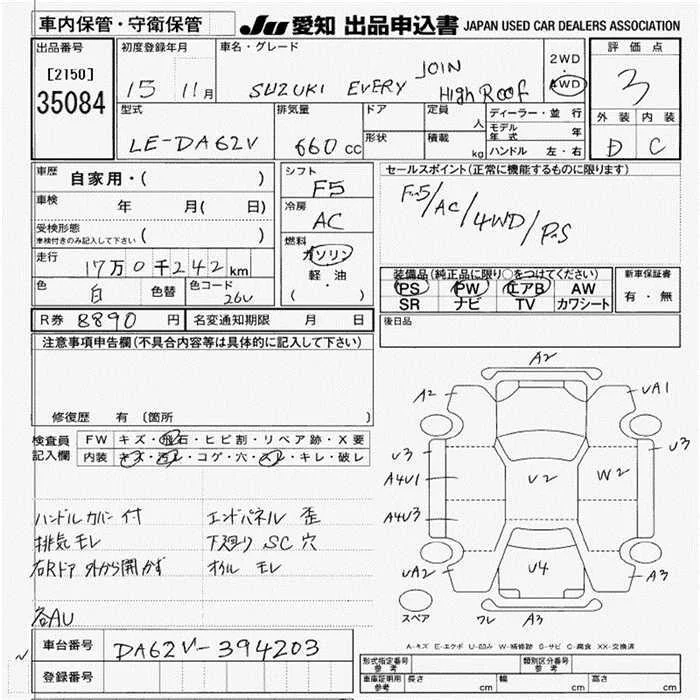 車内保管・守衛保管
JU 愛知 出品申込書 JAPAN USED CAR DEALERS ASSOCIATION
出品番号
[2150]
35084
初度登録年月
15 11月
車名・グレード
SUZUKI EVERY JOIN
High Roof
2WD
4WD
評価点
3
外装 内装
D C
型式
LE-DA62V
排気量
660 cc
ドア
形状
定員
人
積載
kg
ディーラー・並行
モデル年式 年
ハンドル 左・右
車歴
自家用・( )
車検
年 月( 日)
受検形態
車検付きのみ記入して下さい ( )
走行
17万0千242km
色
白
色替
色コード
26U
シフト
F5
冷房
AC
燃料
ガソリン
軽・油
( )
セールスポイント(正常に機能するものに限ります)
F-5/AC/4WD/P-S
装備品(純正品に限り○をつけてください)
PS PW エアB AW
SR ナビ TV カワシート
新車保証書
有・無
R券 8890 円
名変通知期限 月 日
後日品
注意事項申告欄(不具合内容等は具体的に記入して下さい)
修復歴 有 〔箇所
検査員
記入欄
FW キズ・飛石・ヒビ割・リペア跡・X要
内装 キズ・汚レ・コゲ・穴・スレ・キレ・破レ
ハンドルカバー付 エンドパネル 歪
排気モレ 下廻り SC 穴
右Rドア 外から開かず オイル モレ
各AU
A2
A2
UA1
U3
U3
A4U1
U2
W2
A4U3
UA2
U4
A3
スペア
ワレ
A3
A-キズ E-エクボ U-凹み W-補修跡 S-サビ C-腐食 XX-交換済
車台番号 DA62V-394203
登録番号
形式指定番号
参考
類別区分番号
参考
車庫証明用
参考
長さ cm
幅 cm
高さ cm